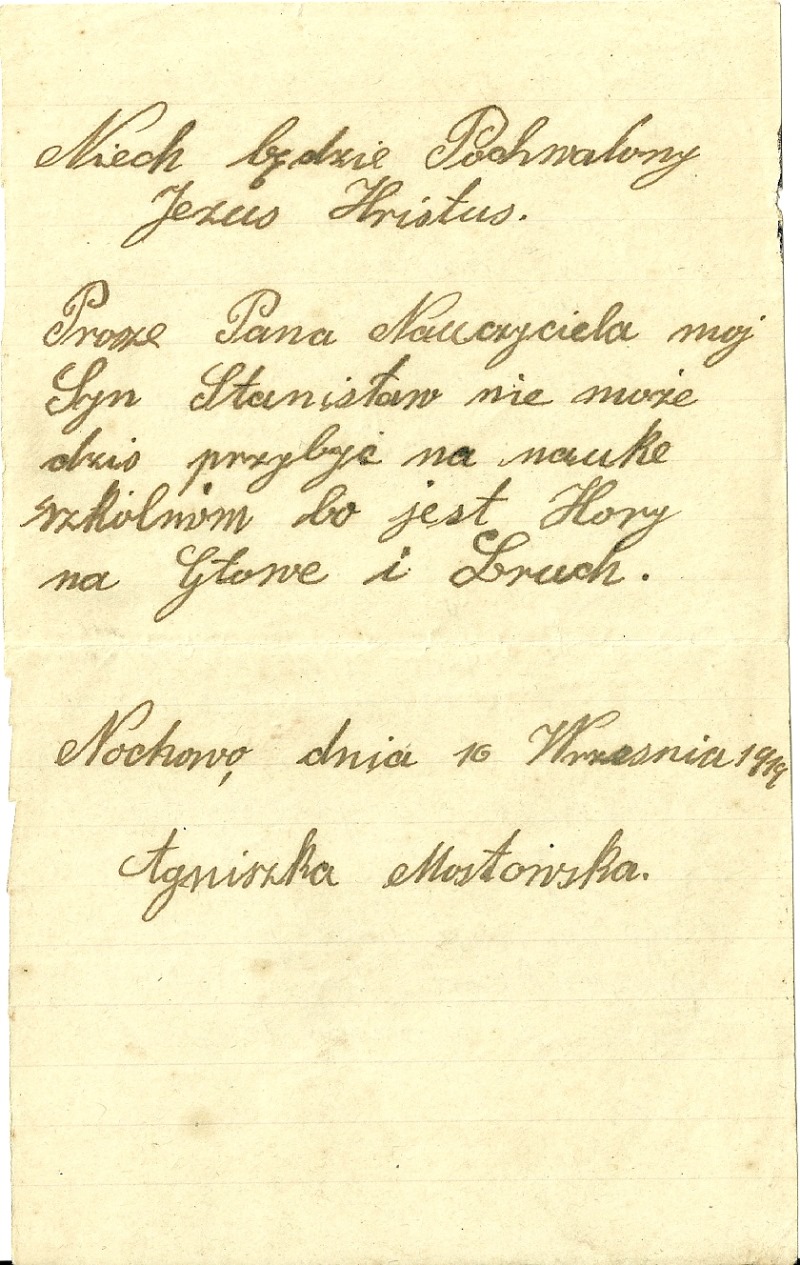 Niech będzie Pochwalony
Jezus Hristus.
Prosze Pana Nauczyciela moj
Syn Stanisław nie może
dzis przybyć na nauke
szkólnóm bo jest Hory
na Głowe i Bruch.
Nochowo, dnia 16 Wrzesnia 1919
Agniszka Mostowska.